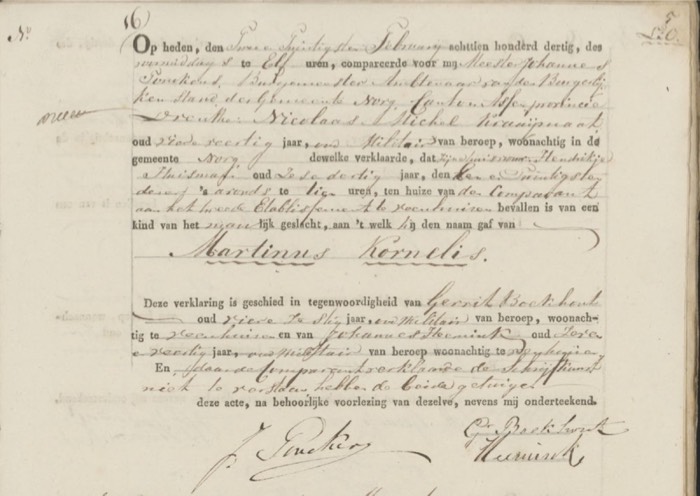 No
16)
Op heden, den Twee Twintigsten February achttien honderd dertig, des
voormiddags te Elf uren, compareerde voor mij Meester Johannes
Tonckens, Burgemeester Ambtenaar van den Burgerlij-
ken stand, der Gemeente Norg, Canton Assen provincie
Drenthe Nicolaas Michel
oud vier en veertig jaar, van beroep, woonachtig in de
gemeente Norg dewelke verklaarde, dat zijne huisvrouw Hendrikje
Huisman oud Zes en dertig jaar, den Een en Twintigsten
dezer 's avonds te tien uren, ten huize van den Comparant
aan het tweede Etablissement te veenhuizen bevallen is van een
kind van het manlijk geslacht, aan 't welk hij den naam gaf van
Martinus Kornelis.
Deze verklaring is geschied in tegenwoordigheid van Gerrit Boekhout
oud vier en Zestig jaar, van beroep, woonach-
tig te veenhuizen en van Johannes oud
veertig jaar, van beroep woonachtig te
En daar de Comparant verklaarde de Schrijfkunst
niet te verstaan hebben de beide getuigen
deze acte, na behoorlijke voorlezing van dezelve, nevens mij onderteekend.
J. Tonckens
G Boekhout